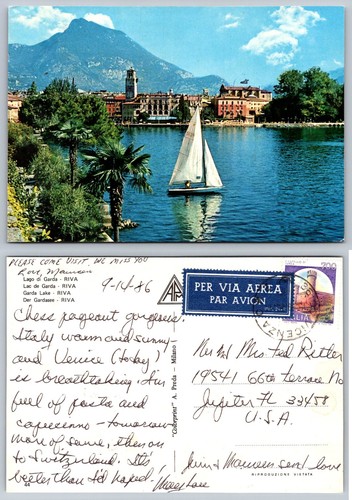 PLEASE COME VISIT WE MISS YOU
Love, Maureen
Lago di Garda - RIVA
Lac de Garda - RIVA
Garda Lake - RIVA
Der Gardasee - RIVA
9-14-86
PER VIA AEREA
PAR AVION
700
VICENZA
Chess pageant gorgeous.
Italy warm and sunny
and Venice (today)
is breathtaking. I'm
full of pasta and
capuccino - tomorrow
more of same, then on
to Switzerland. It's
better than I'd hoped!
"Cecami" A. Preda - Milano
Mr. and Mrs. Ted Ritter
19541 66th Terrace No
Jupiter FL 33458
U.S.A.
RIPRODUZIONE VIETATA
Jim & Maureen send love
44